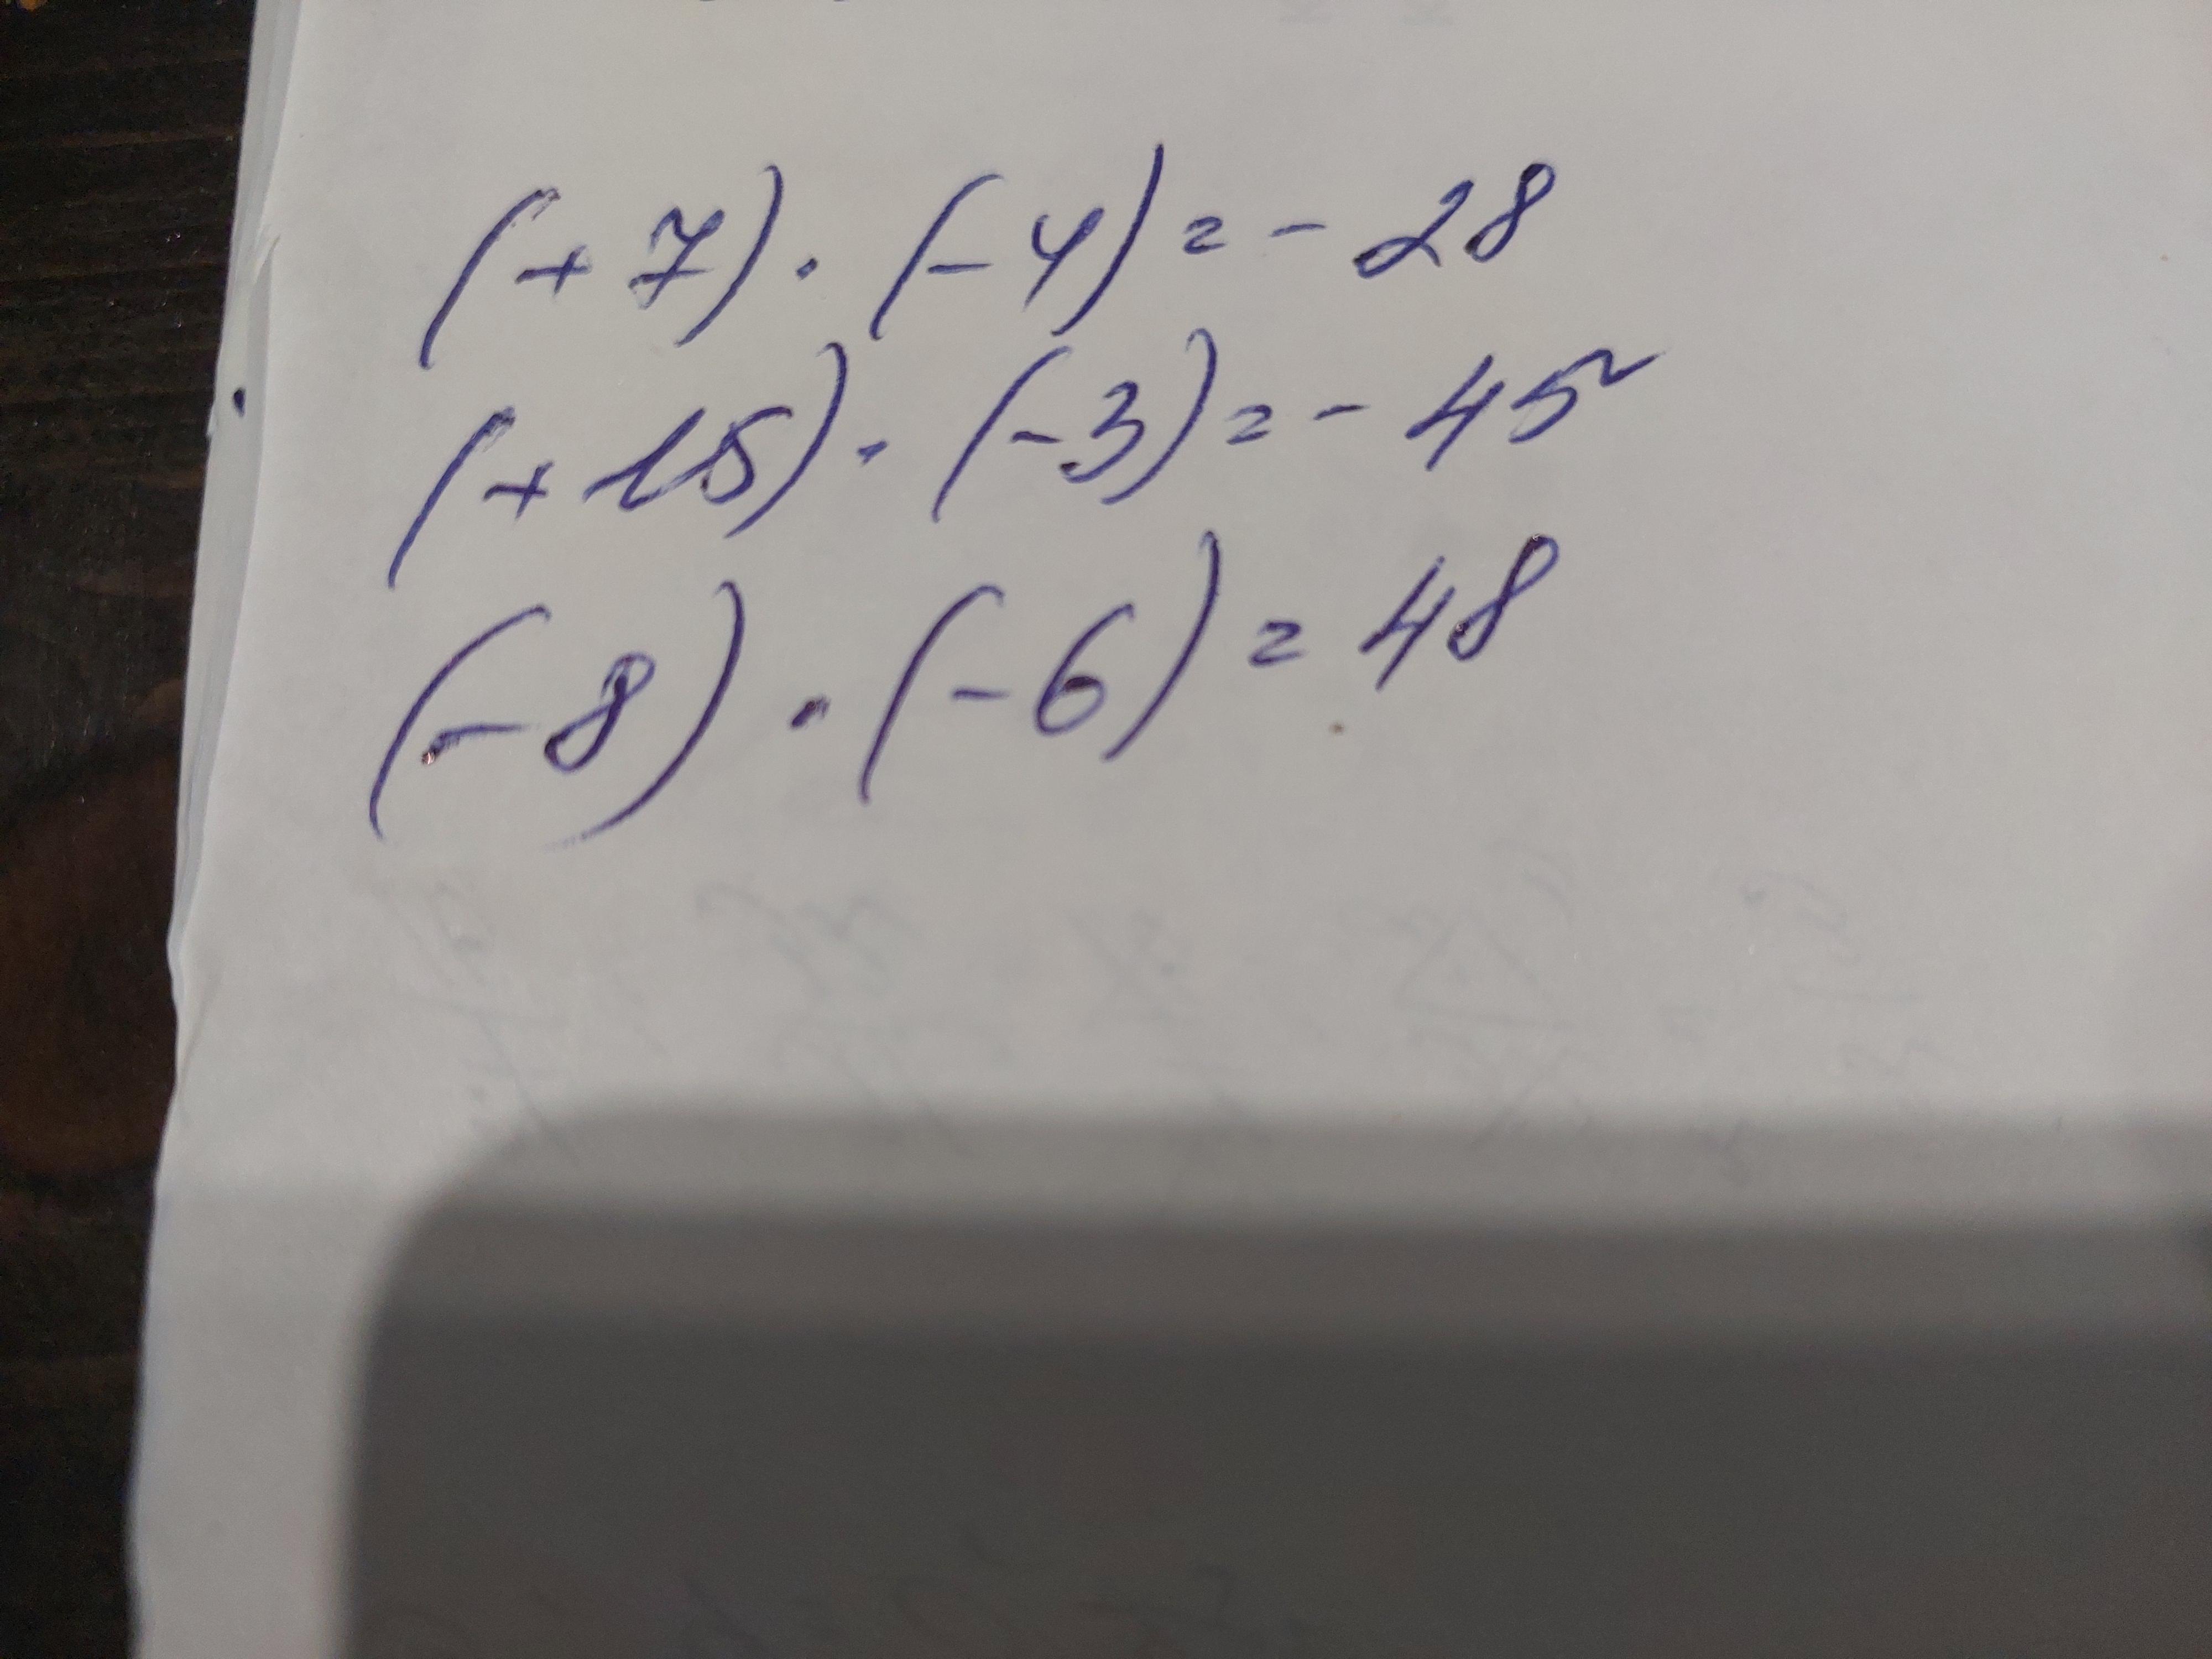 (+7)·(-4)=-28
(+15)·(-3)=-45
(-8)·(-6)=48